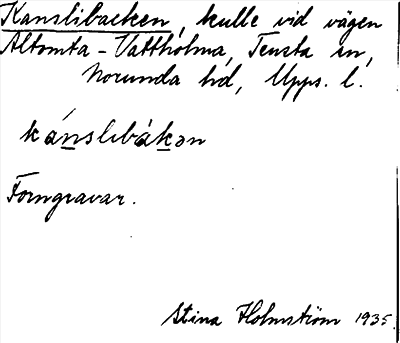 Kanslibacken, kulle vid vägen
Altomta - Vattholma, Tensta sn,
Norunda hd, Upps. l.
kánslibàkən
Forngravar.
Stina Holmström 1935.